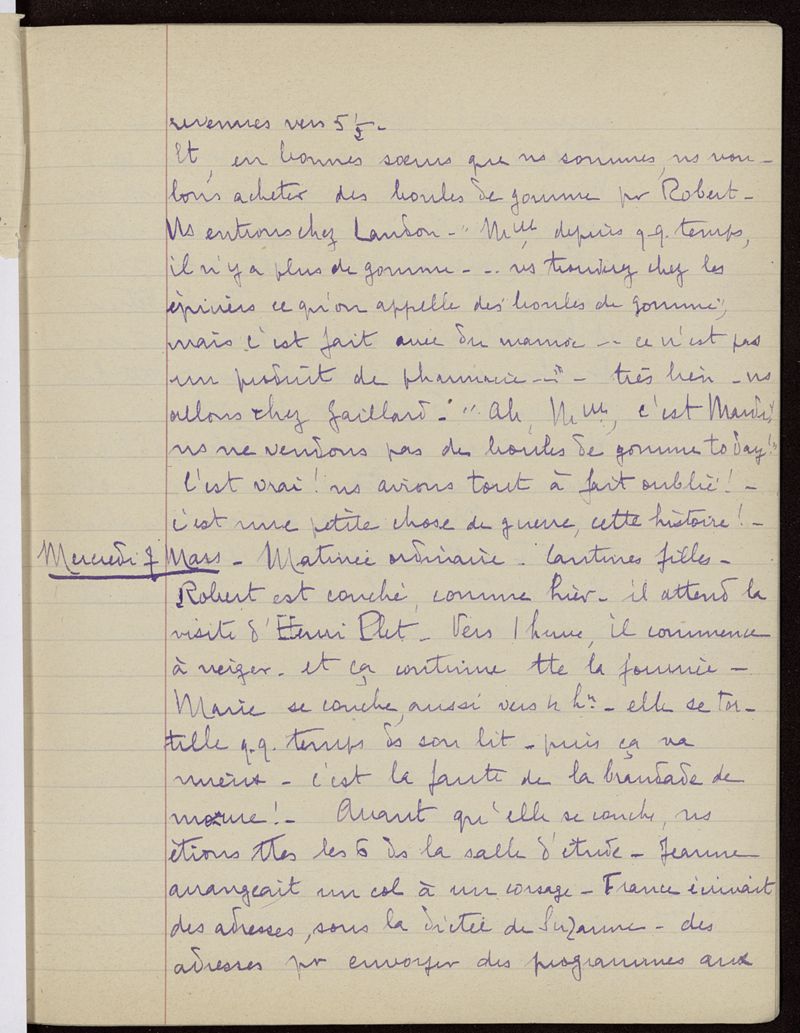 revenues vers 5 1/2 -
Et, en bonnes sœurs que ns sommes, ns vou-
lons acheter des boules de gomme pr Robert -
Ns entrons chez Landon - " Melle, depuis q.q. temps,
il n'y a plus de gomme - .. vs trouverez chez les
épiciers ce qu'on appelle des "boules de gomme",
mais c'est fait avec du manioc -- ce n'est pas
un produit de pharmacie --" - très bien - ns
allons chez Gaillard - " Ah, Melle, c'est Mardi!
ns ne vendons pas de boules de gomme to day!"
C'est vrai! ns avions tout à fait oublié! -
c'est une petite chose de guerre, cette histoire! -
Mercredi 7 Mars - Matinée ordinaire - Cantines filles -
Robert est couché, comme hier - il attend la
visite d'Henri Plet - Vers 1 heure, il commence
à neiger - et ça continue tte la journée -
Marie se couche, aussi vers 4 hrs - elle se tor-
tille q.q. temps ds son lit - puis ça va
mieux - c'est la faute de la brandade de
morue! - Avant qu'elle se couche, ns
étions ttes les 6 ds la salle d'étude - Jeanne
arrangeait un col à un corsage - France écrivait
des adresses, sous la dictée de Suzanne - des
adresses pr envoyer des programmes aux